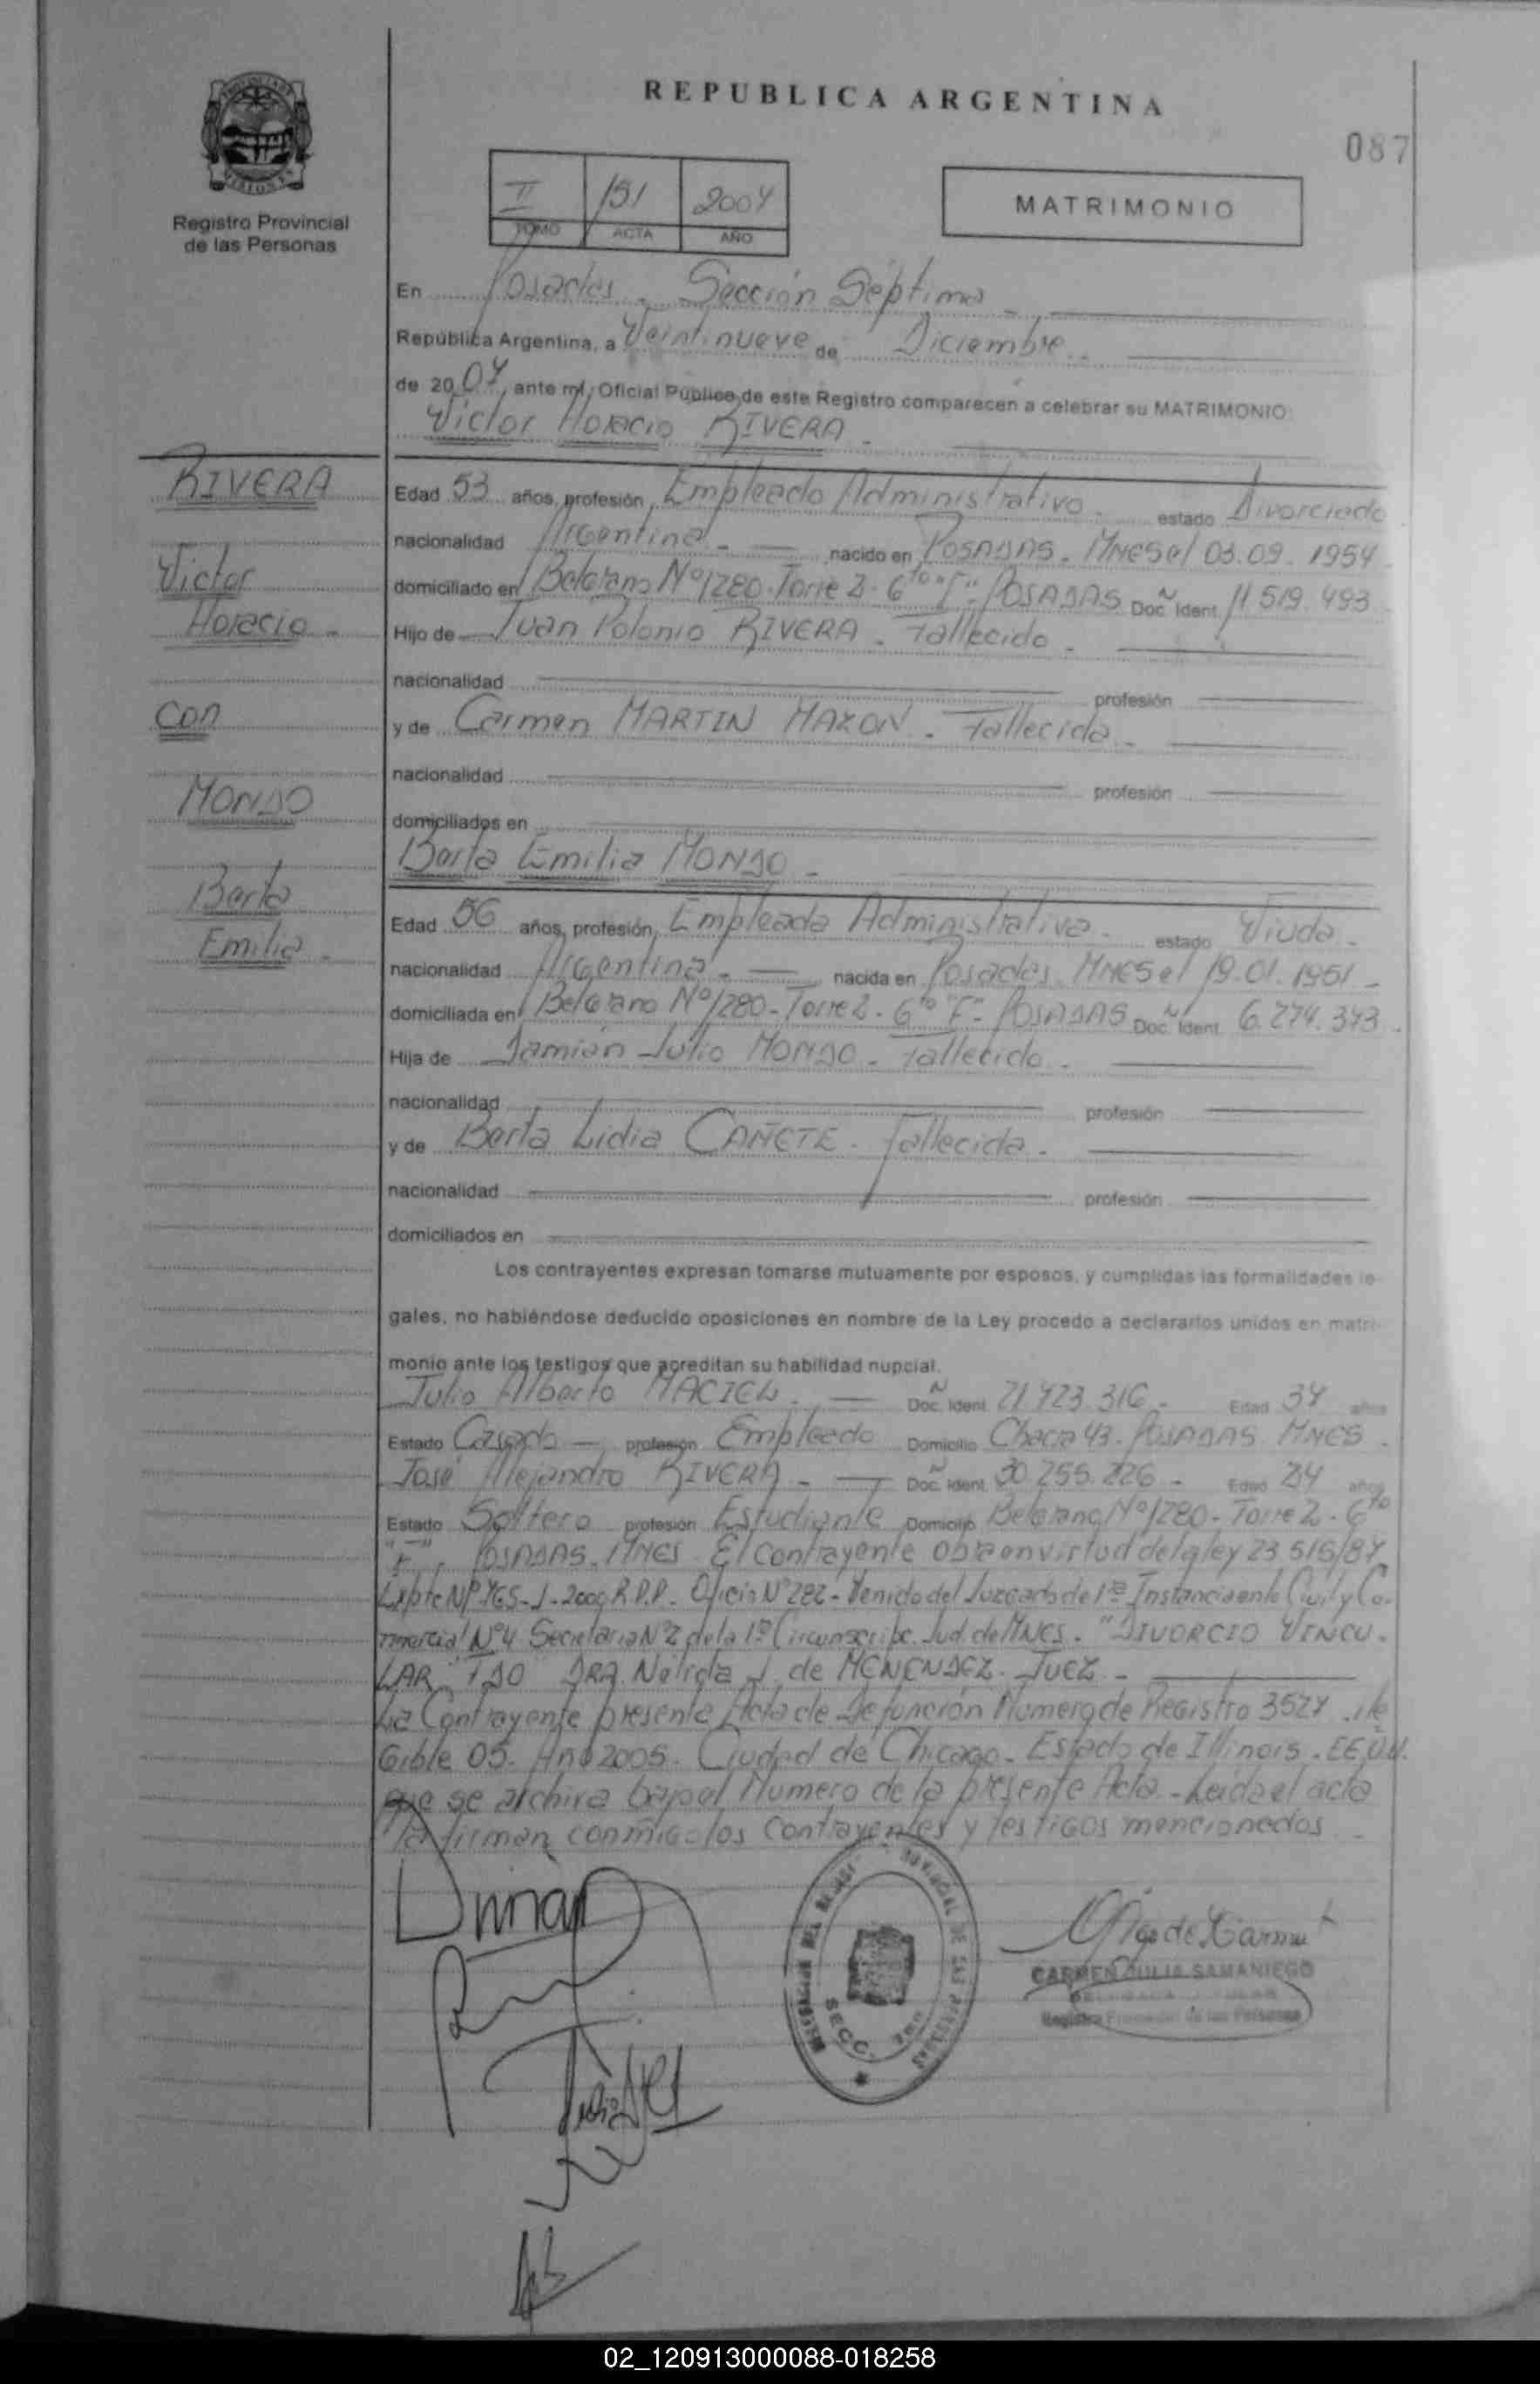 REPUBLICA ARGENTINA
087
Registro Provincial
de las Personas
II 151 2007
TOMO ACTA AÑO
MATRIMONIO
En Posadas - Sección Séptima -
República Argentina, a Veintinueve de Diciembre
de 2007, ante mí, Oficial Público de este Registro comparecen a celebrar su MATRIMONIO:
Victor Horacio RIVERA -
RIVERA
Victor
Horacio -
con
MONDO
Berta
Emilia -
Edad 53 años, profesión, Empleado Administrativo - estado Divorciado
nacionalidad Argentina - nacido en POSADAS - MNES el 03.09.1954
domiciliado en Belgrano Nº 1280 - Torre 2 - 6to "F" - POSADAS Doc. Ident. 11.519.493
Hijo de Juan Polonio RIVERA - Fallecido -
nacionalidad profesión
y de Carmen MARTIN - Fallecida -
nacionalidad profesión
domiciliados en
Berta Emilia MONDO -
Edad 56 años, profesión, Empleada Administrativa - estado Viuda -
nacionalidad Argentina - nacida en Posadas - MNES el 19.01.1951 -
domiciliada en Belgrano Nº 1280 - Torre 2 - 6to "F" - POSADAS Doc. Ident. 6.274.343
Hija de Damián Julio MONDO - Fallecido -
nacionalidad profesión
y de Berta Lidia CAÑETE - Fallecida -
nacionalidad profesión
domiciliados en
Los contrayentes expresan tomarse mutuamente por esposos, y cumplidas las formalidades le-
gales, no habiéndose deducido oposiciones en nombre de la Ley procedo a declararlos unidos en matri-
monio ante los testigos que acreditan su habilidad nupcial.
Julio Alberto MACIEL - Doc. Ident. 21.723.316 - Edad 37 años
Estado Casado - profesión Empleado Domicilio Chacra 43 - POSADAS MNES -
José Alejandro RIVERA - Doc. Ident. 30.255.226 - Edad 24 años
Estado Soltero profesión Estudiante Domicilio Belgrano Nº 1280 - Torre 2 - 6to
"F" - POSADAS - MNES El contrayente obra en virtud de la ley 23 515/87
Expte Nº - J - 2000 R.P.P. Oficio Nº 282 - Venido del Juzgado de 1ª Instancia en lo Civil y Co-
mercial Nº 4 Secretaria Nº 2 de la 1ª Circunscripc. Jud. de MNES - "DIVORCIO VINCU-
LAR" FDO DRA. Nelida J. de MENENDEZ - JUEZ -
La Contrayente presenta Acta de Defunción Numero de Registro 3527 ile
Gible 05 - Año 2005 - Ciudad de Chicago - Estado de Illinois - EE.UU.
que se archiva bajo el Numero de la presente Acta - Leida el acta
la firman conmigo los Contrayentes y testigos mencionados -
SECC. 7ma
CARMEN JULIA SAMANIEGO
Registro Provincial de las Personas
02_120913000088-018258